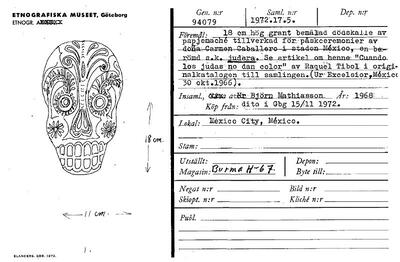 ETNOGRAFISKA MUSEET, Göteborg
ETNOGR.
Gen. n:r
94079
Saml. n:r
1972.17.5.
Dep. n:r
Föremål: 18 cm hög grant bemålad dödskalle av
pappjemaché tillverkad för påskceremonier av
doña Carmen Caballero i staden México, en be-
römd s.k. judera. Se artikel om henne "Cuando
los judas no dan color" av Raquel Tibol i origi-
nalkatalogen till samlingen.(Ur Excelsior,México
30 okt.1966).
Insaml., av: Björn Mathiasson År: 1968
Köp från: dito i Gbg 15/11 1972.
Lokal: México City, México.
Stam:
Utställt:
Depon:
Magasin: Burma H-67.
Byte till:
Negat n:r
Bild n:r
Skiopt. n:r
Kliché n:r
Publ.
18 cm.
11 cm.
1.
ELANDERS, GBG. 1972.